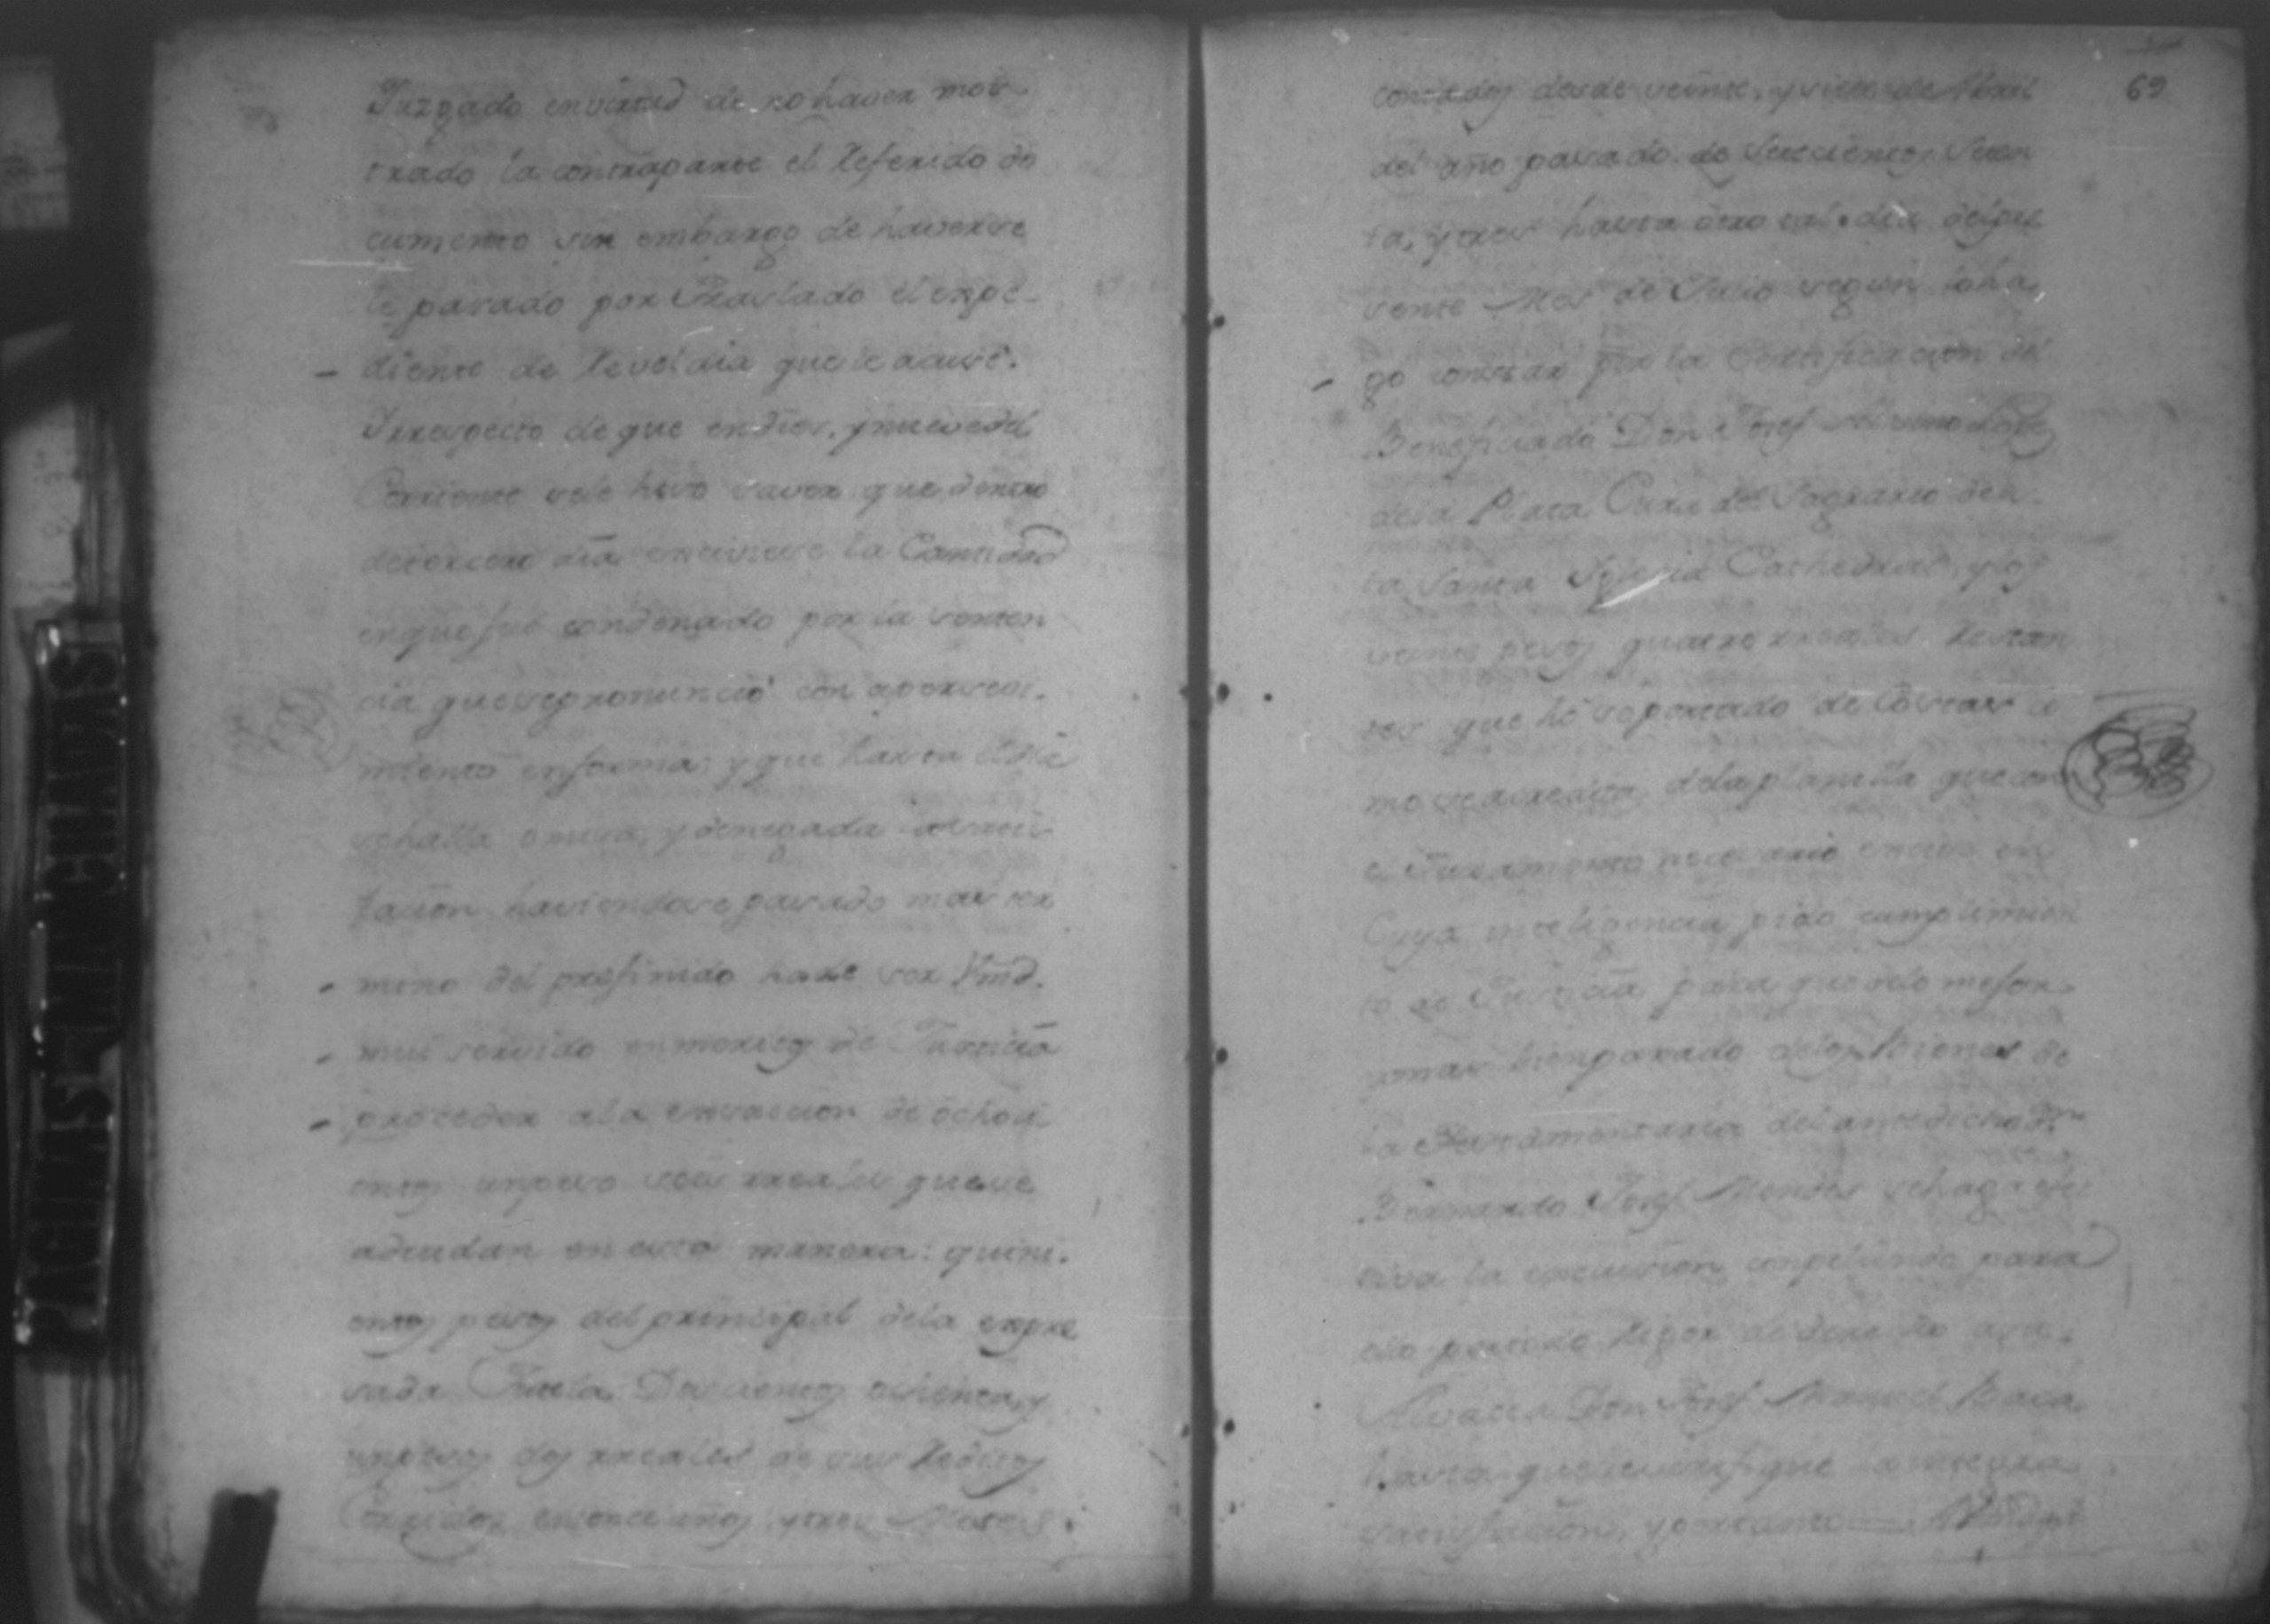 Juzgado envirtud de no haver mos
trado la contraparte el Referido do
cumento sin embargo de haversse
le pasado por Traslado el expe-
diente de Reveldia que le acusè.
Yrrespecto de que endies, y nueve del
Corriente sele hiso saver que dentro
detercero dia enterase la Cantidad
enque fue condenado por la senten
cia que se pronunciò con apercevi-
miento enforma; y que hasta el dia
se halla omisa, y denegada asatis
facion haviendose pasado mas ter
mino del prefinido hade ser Vmd.
mui servido enmeritos de Justicia
proceder ala exsaccion de ochosi
entos unpeso seis rreales que se
adeudan en esta manera: quini-
entos pesos del principal dela expre
sada Doscientos ochenta, y
unpesos dos rreales de sus Reditos
Corridos enonce años, y tres Meses
69
contados desde veinte, y siete de Abril
del año pasado de Setecientos Seten
ta, y tres hasta otro tal dia del pre
sente Mes de Julio segun lo ha
go constar por la Certificacion del
Beneficiado Don Josef
dela Plata Cura del Sagrario des
ta Santa Yglesia Cathedral, y los
veinte pesos quatro rreales Restan
tes que hè soportado de Costas co
mo se acredita dela planilla que con
el Juramento necesario en
Cuya inteligencia pido cumplimien
to de Justicia para que delo mejor
y mas bienparado delos Bienes de
la Testamentaria del antedicho Dn.
Bernardo Josef Mendes se haga efec
tiva la execusion conpeliendo para
ello por todo Rigor de derecho asu
Alvacea Don Josef Manuel Baca
hasta que se verifique la integra
satisfacion, y por tanto =